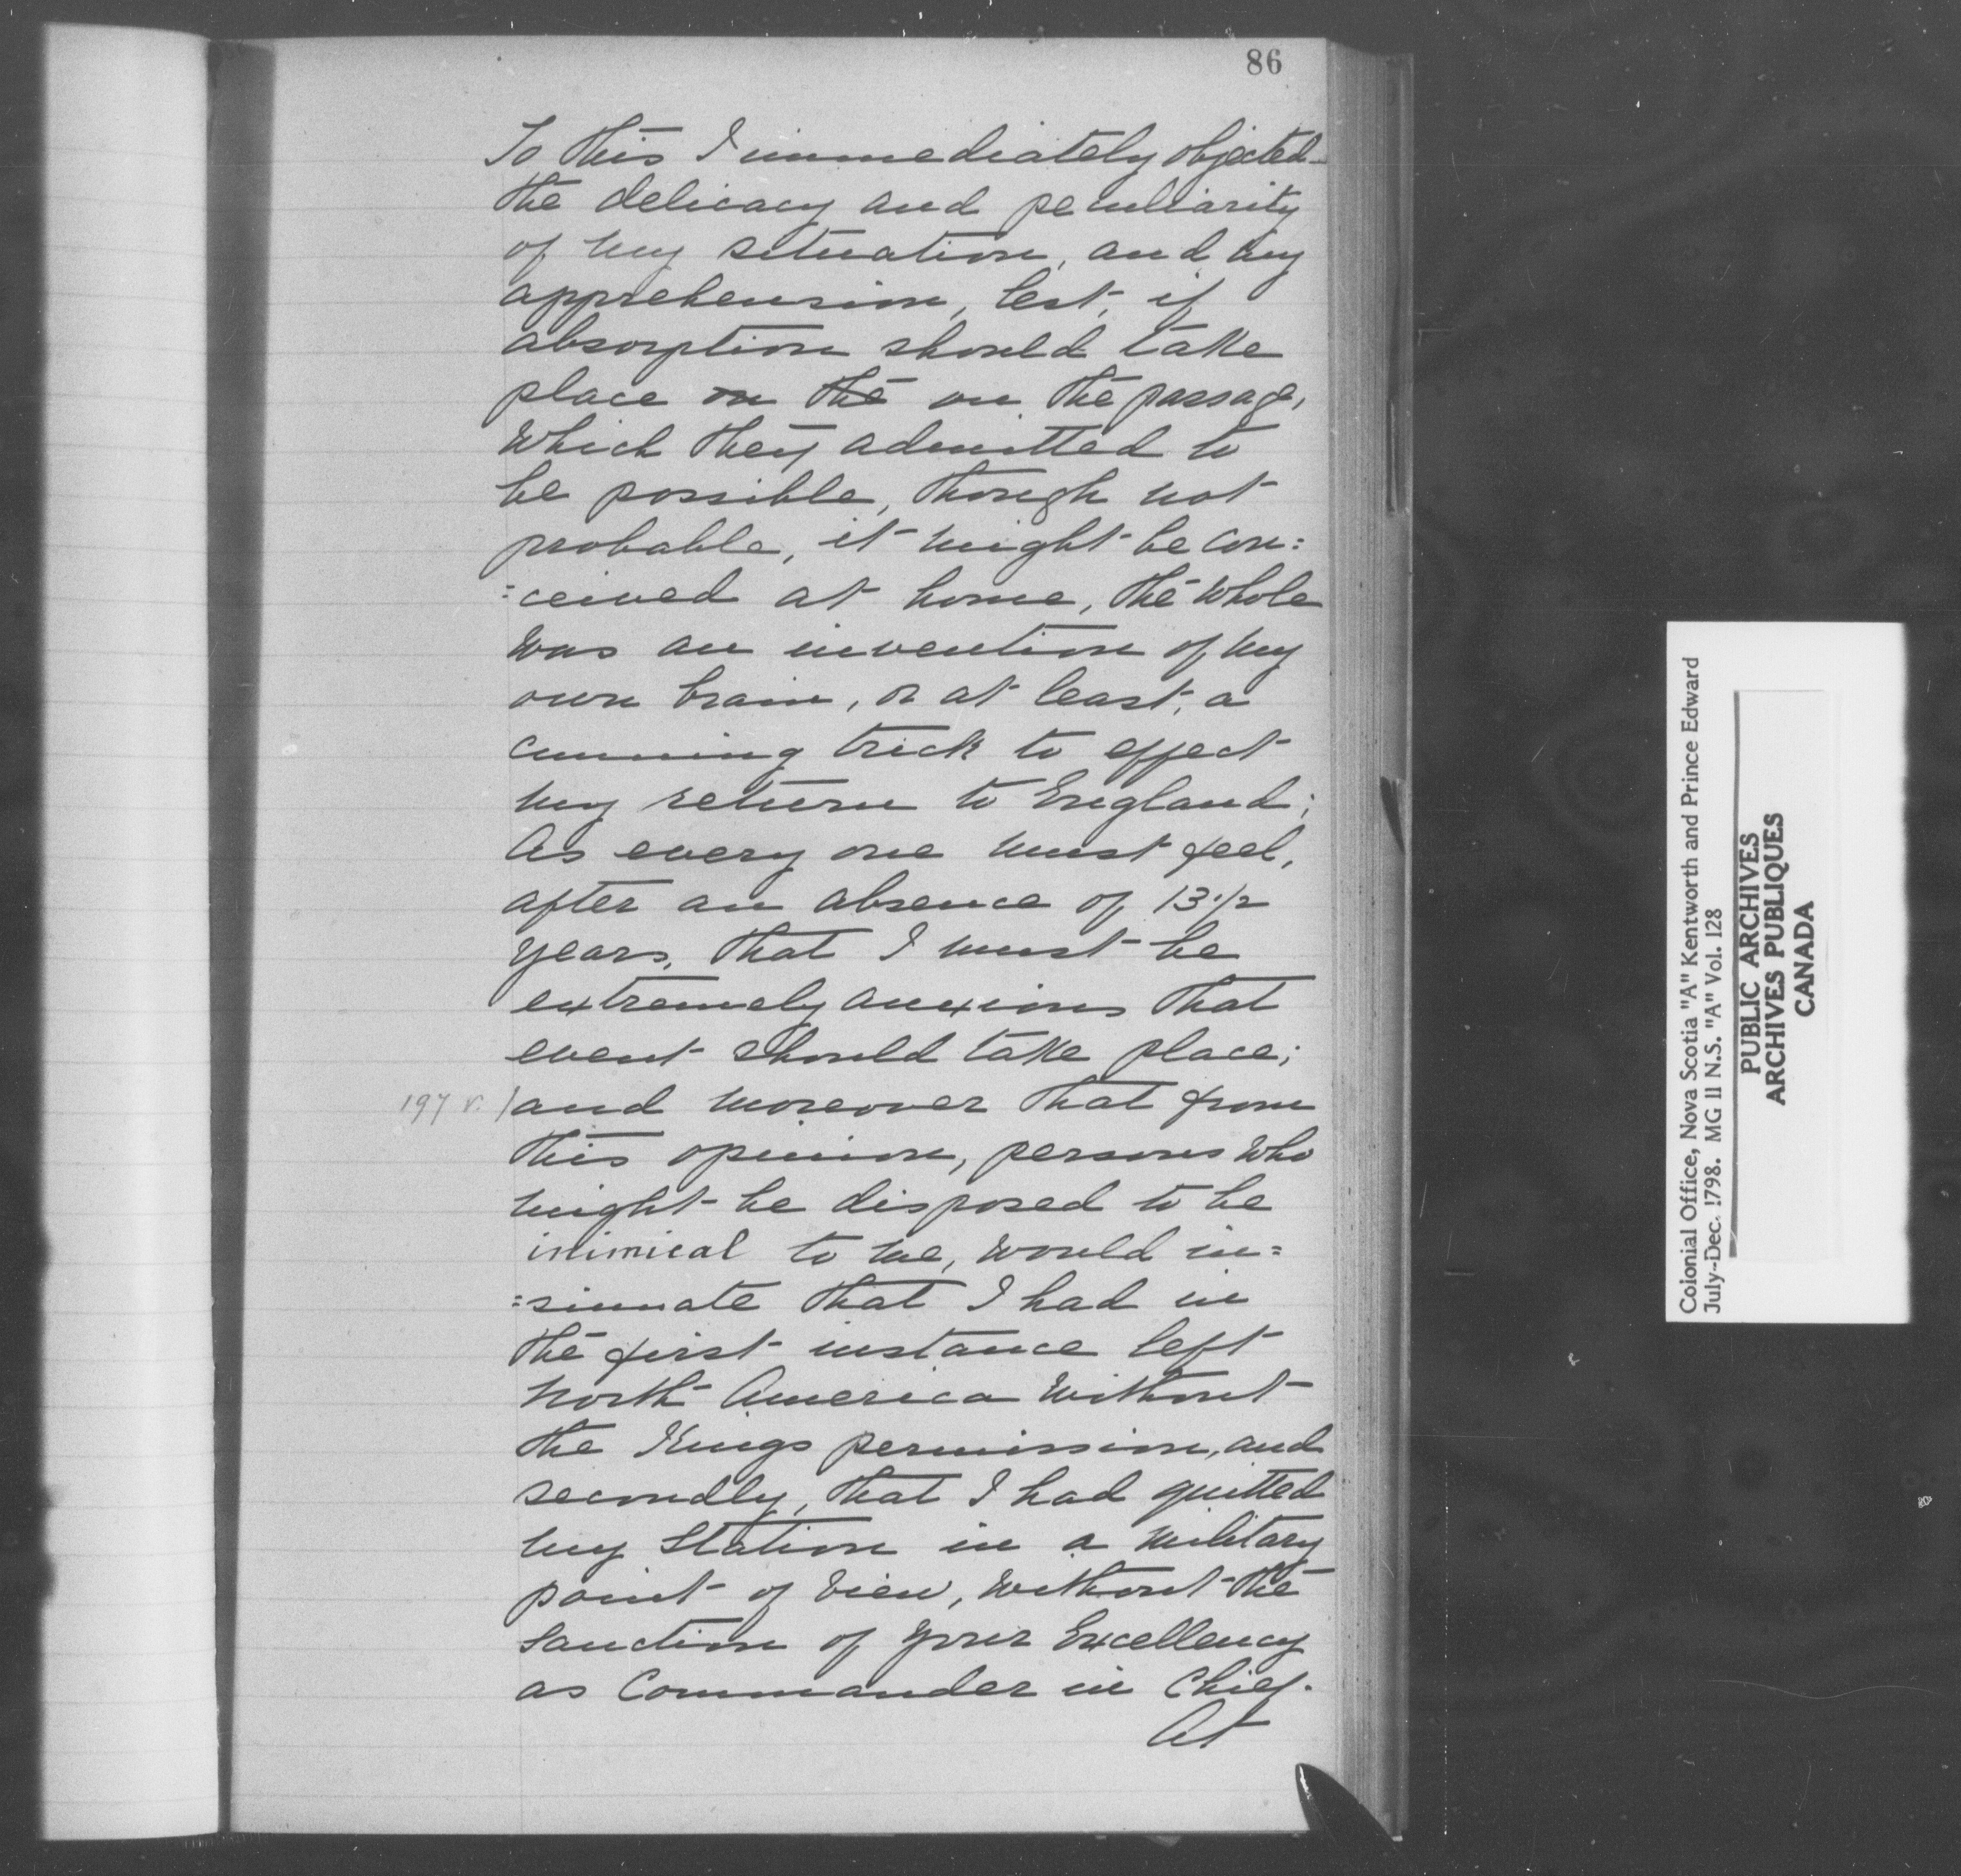 86
To this I immediately objected
the delicacy and peculiarity
of my situation, and my
apprehension, lest, if
absorption should take
place on the on the passage,
which they admitted to
be possible, though not
probable, it might be con:
:ceived at home, the whole
was an invention of my
own brain, or at least, a
cunning trick to effect
my return to England;
As every one must feel,
after an absence of 13 1/2
years, that I must be
extremely anxious that
event should take place;
197 v. / and moreover that from
this opinion, persons who
might be disposed to be
inimical to me, would in:
:sinuate that I had in
the first instance left
North America without
the Kings permission, and
secondly, that I had quitted
my Station in a military
point of view, without the
Sanction of your Excellency
as Commander in Chief.
At
Colonial Office, Nova Scotia "A" Kentworth and Prince Edward
July-Dec. 1798. MG 11 N.S. "A" Vol. 128
PUBLIC ARCHIVES
ARCHIVES PUBLIQUES
CANADA